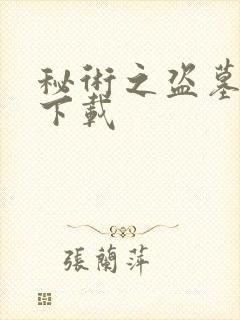 秘術之盜墓
下載
張蘭萍